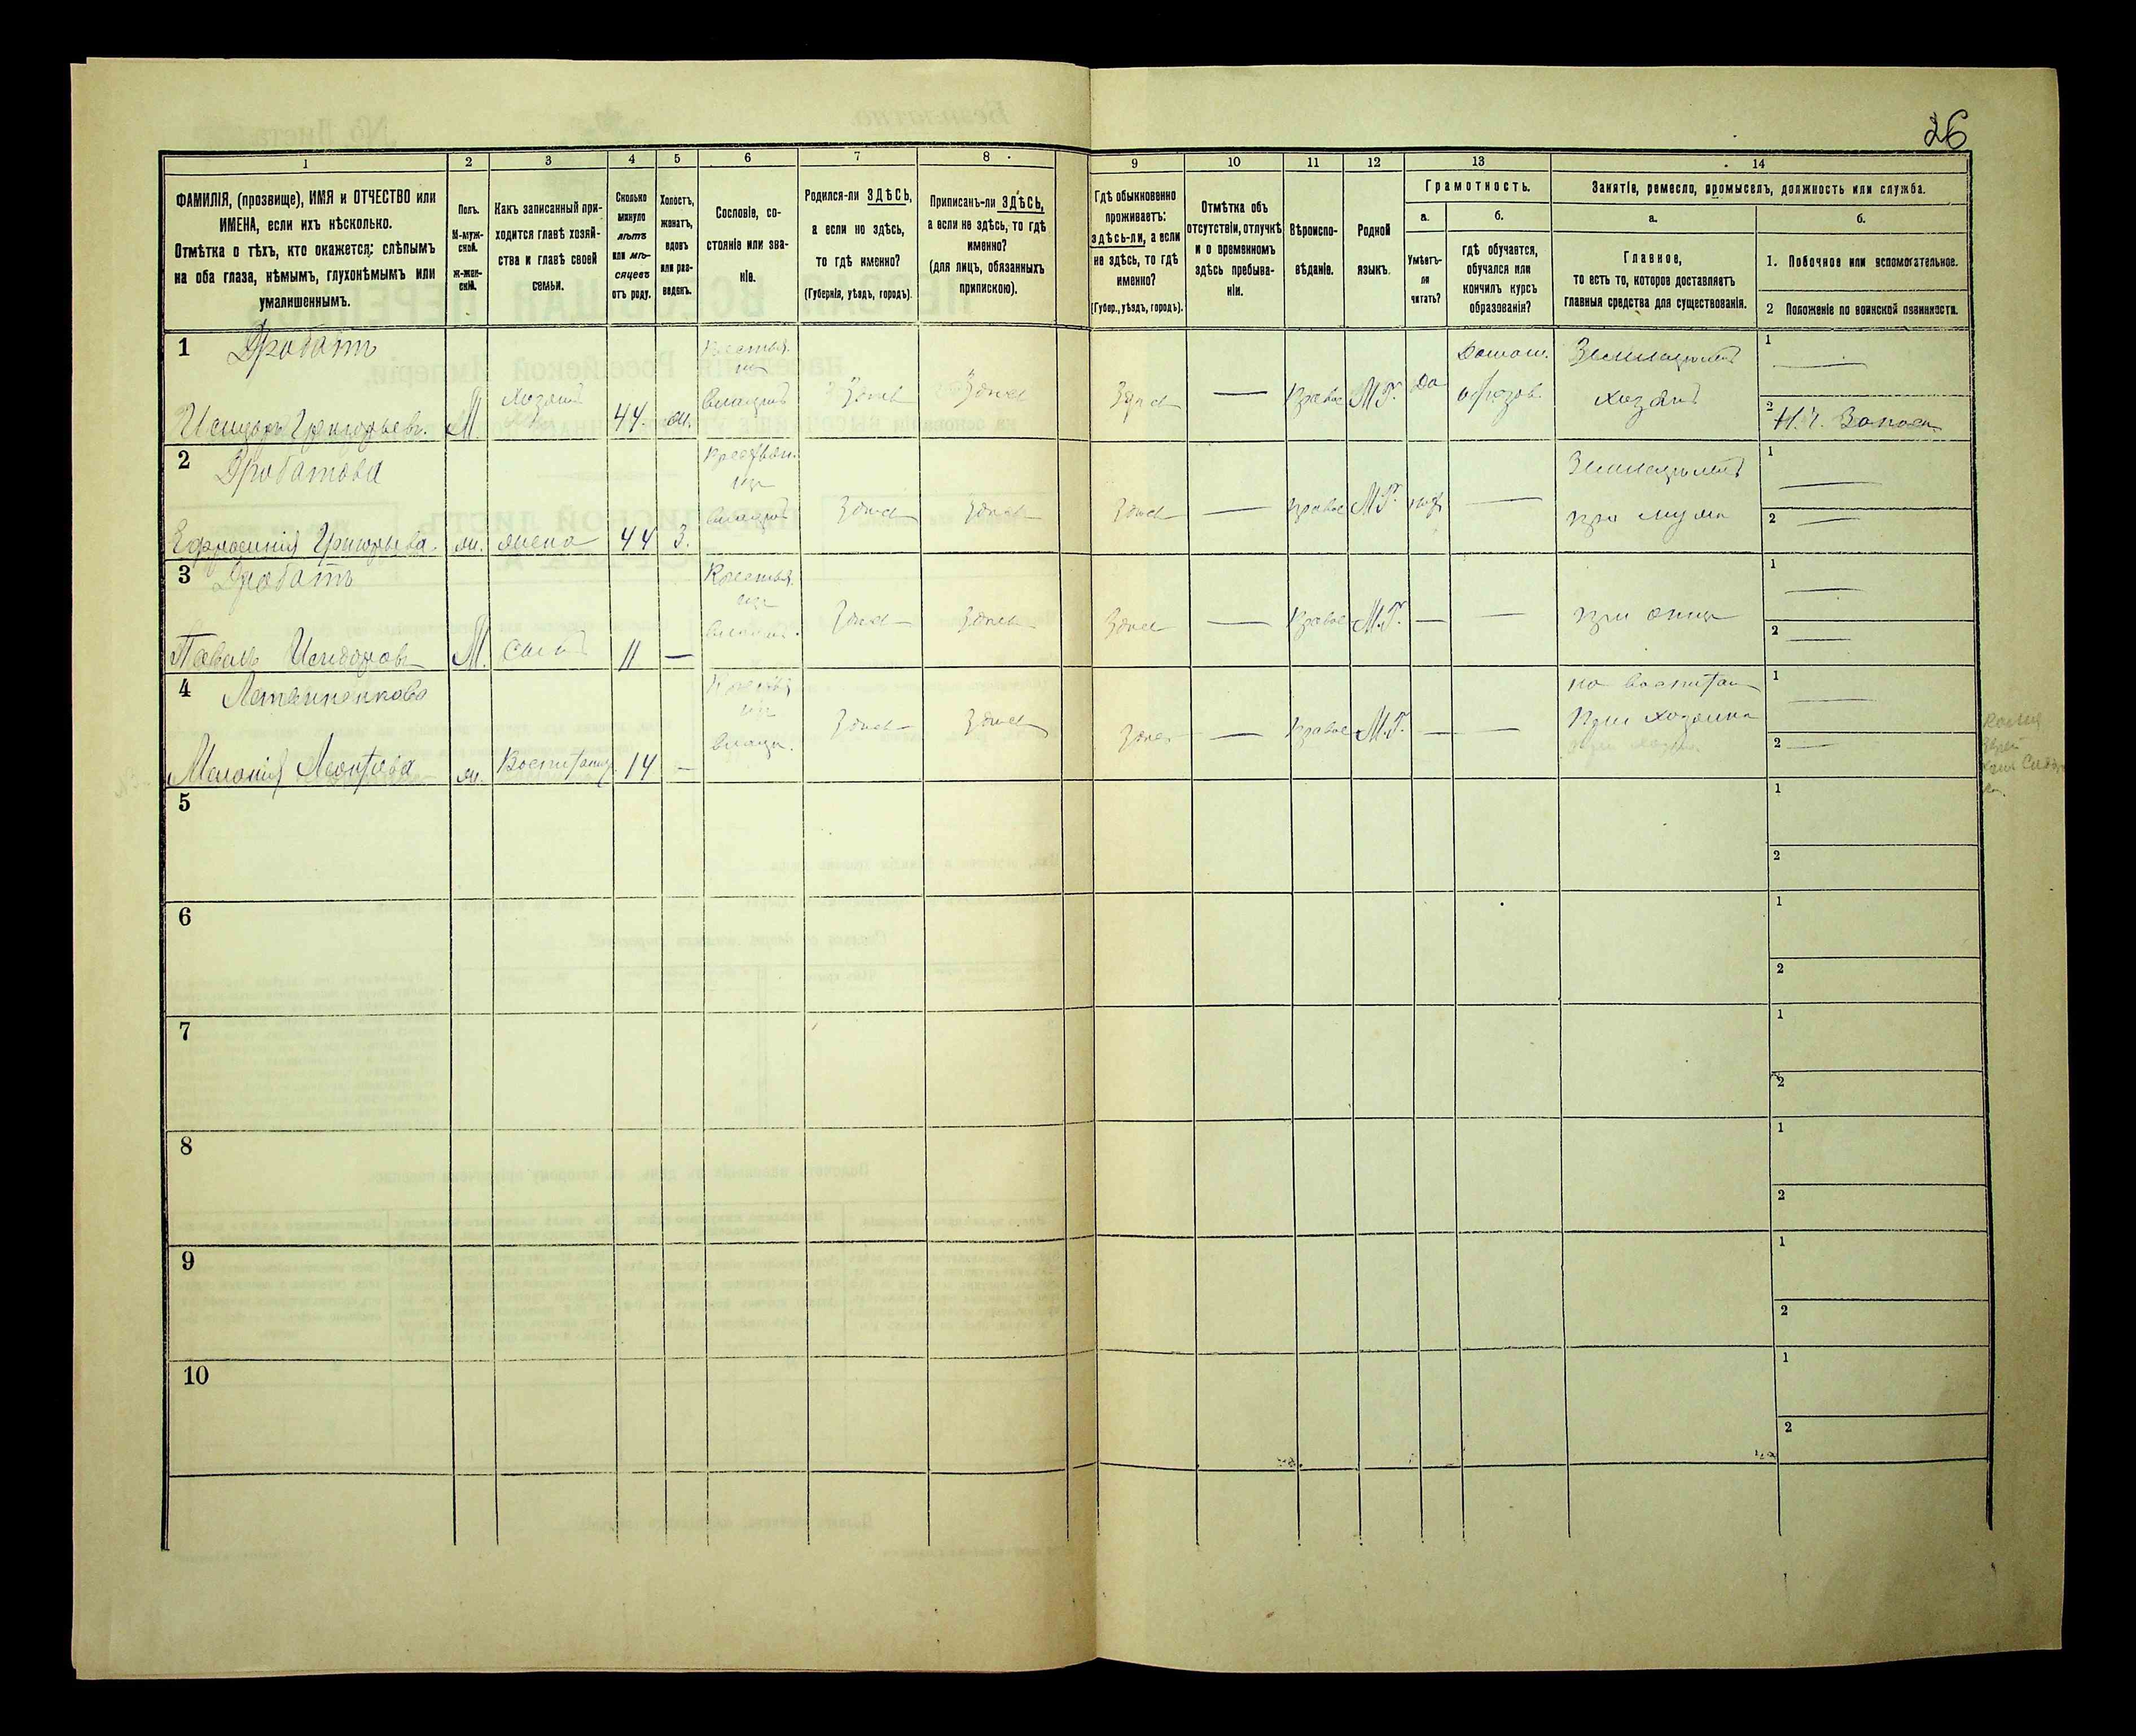 26
1
2
3
4
5
6
7
8
9
10
11
12
13
14
ФАМИЛІЯ, (прозвище), ИМЯ и ОТЧЕСТВО или
ИМЕНА, если ихъ нѣсколько.
Отмѣтка о тѣхъ, кто окажется: слѣпымъ
на оба глаза, нѣмымъ, глухонѣмымъ или
умалишеннымъ.
Полъ.
М-муж-
ской.
Ж-жен-
скій.
Какъ записанный при-
ходится главѣ хозяй-
ства и главѣ своей
семьи.
Сколько
минуло
лѣтъ
или мѣ-
сяцевъ
отъ роду.
Холостъ,
женатъ,
вдовъ
или раз-
веденъ.
Сословіе, со-
стояніе или зва-
ніе.
Родился-ли ЗДѢСЬ,
а если не здѣсь,
то гдѣ именно?
(Губернія, уѣздъ, городъ).
Приписанъ-ли ЗДѢСЬ,
а если не здѣсь, то гдѣ
именно?
(для лицъ, обязанныхъ
припискою).
Гдѣ обыкновенно
проживаетъ:
здѣсь-ли, а если
не здѣсь, то гдѣ
именно?
(Губер., уѣздъ, городъ).
Отмѣтка объ
отсутствіи, отлучкѣ
и о временномъ
здѣсь пребыва-
ніи.
Вѣроиспо-
вѣданіе.
Родной
языкъ.
Грамотность.
а.
Умѣетъ-
ли
читать?
б.
гдѣ обучается,
обучался или
кончилъ курсъ
образованія?
Занятіе, ремесло, промыселъ, должность или служба.
а.
Главное,
то есть то, которое доставляетъ
главныя средства для существованія.
б.
1. Побочное или вспомогательное.
2 Положеніе по воинской повинности.
1 Дробатъ
Исидоръ Григорьевъ.
М.
Хозяинъ
44.
ж.
Крестья-
нъ
владѣл
Здѣсь
Здѣсь
Здѣсь
—
Правос
М.Р.
да
Домаш.
образов.
Земледѣлецъ
хозяинъ
1 —
2 Н.Ч. Запасн.
2 Дробатова
Ефросинія Григорьева.
ж.
жена
44
З.
Крестьян.
изъ
владѣл
Здѣсь
Здѣсь
Здѣсь
—
Правос
М.Р.
—
Земледѣлецъ
при мужѣ
1 —
2 —
3 Дробатъ
Павелъ Исидоровъ
М.
Сынъ
11
—
Крестья.
изъ
владѣл.
Здѣсь
Здѣсь
Здѣсь
—
Правос
М.Р.
—
—
при отцѣ
1 —
2 —
4
Меланія Леонтьева
ж.
Воспитаннц.
14
—
Крестья
изъ
владѣл.
Здѣсь
Здѣсь
Здѣсь
—
Правос
М.Р.
—
—
на воспитан
При хозяинѣ
1 —
2 —
5
1
2
6
1
2
7
1
2
8
1
2
9
1
2
10
1
2